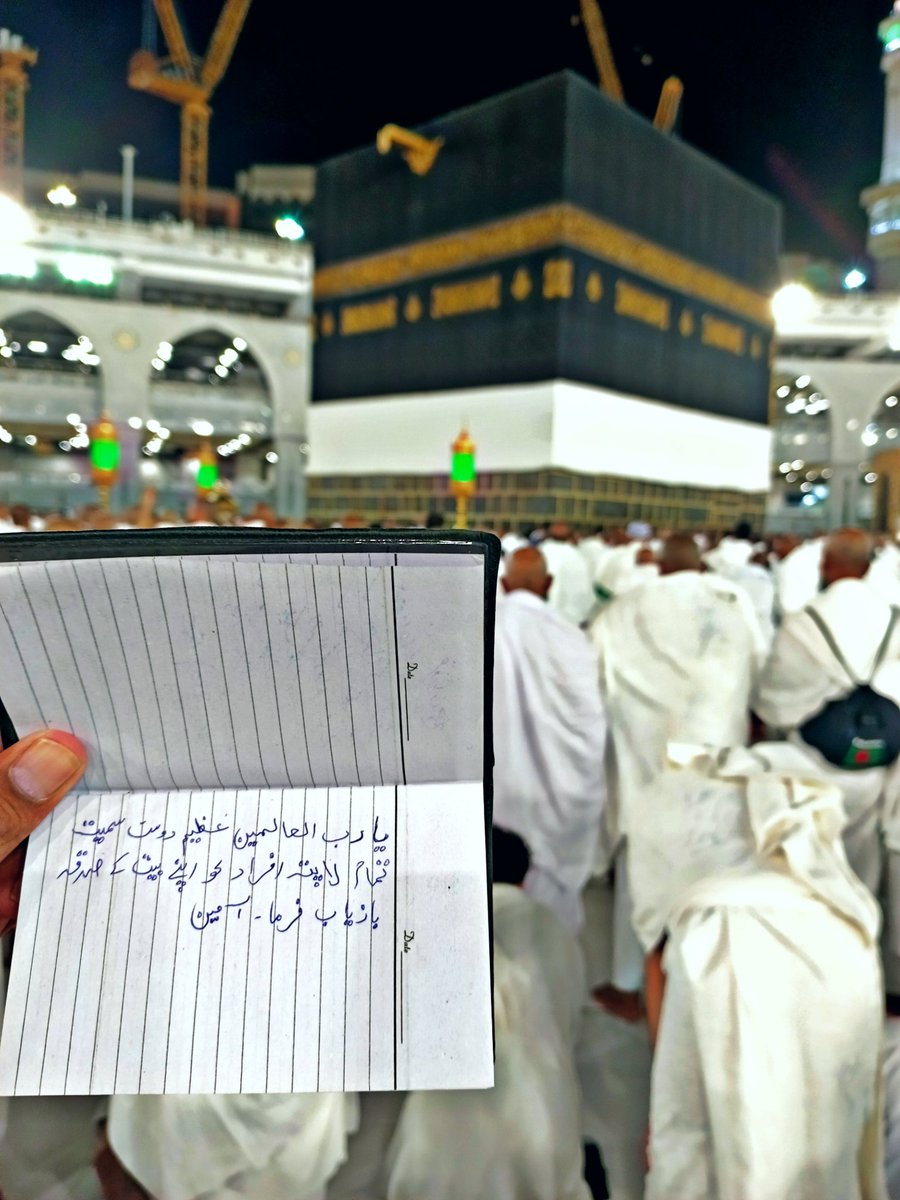 Date
یا رب العالمین عظیم دوست سمیت
تمام لاپتہ افراد کو اپنے بیت کے صدقہ
بازیاب فرما۔ آمین
Date